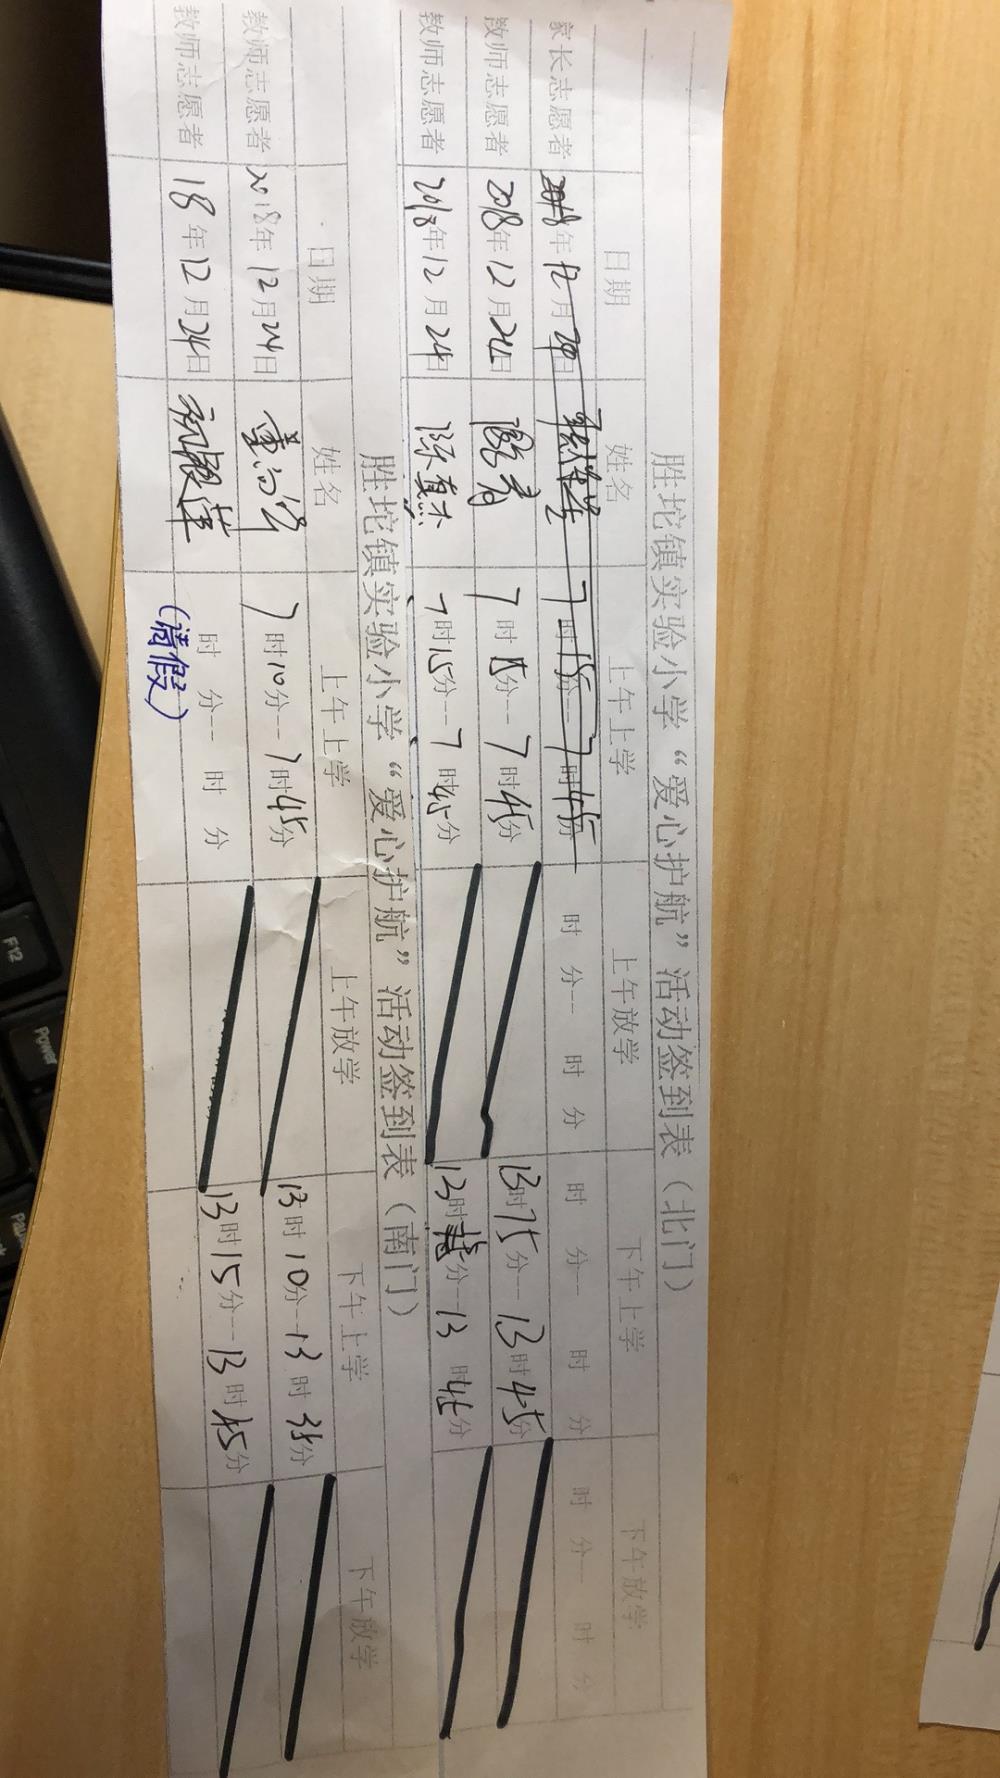 胜坨镇实验小学“爱心护航”活动签到表（北门）
日期 姓名 上午上学 上午放学 下午上学 下午放学
家长志愿者 2018年12月20日 7时15分--7时45分 时 分-- 时 分 时 分-- 时 分 时 分-- 时 分
教师志愿者 2018年12月24日 7时15分--7时45分 13时15分--13时45分
教师志愿者 2018年12月24日 陈真杰 7时15分--7时45分 13时 分--13时45分
胜坨镇实验小学“爱心护航”活动签到表（南门）
日期 姓名 上午上学 上午放学 下午上学 下午放学
教师志愿者 2018年12月24日 7时10分--7时45分 13时10分--13时35分
教师志愿者 18年12月24日 时 分-- 时 分 13时15分--13时45分
（请假）
F12
Power